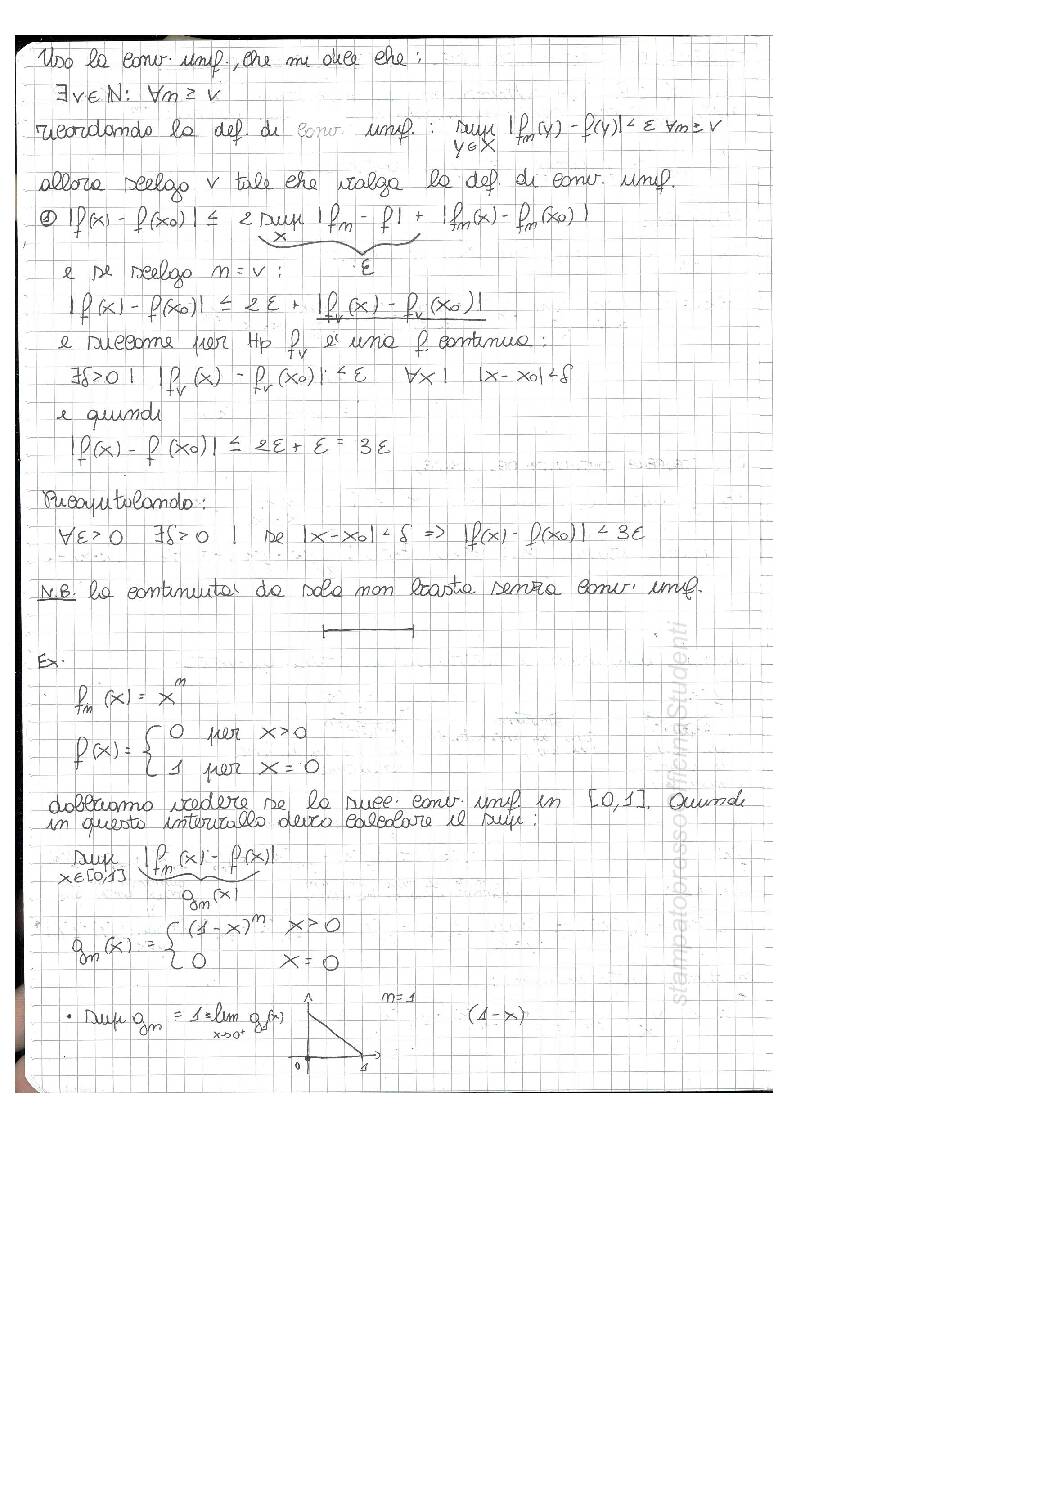 Uso la conv. unif., che mi dice che:
∃ν∈N: ∀n ≥ ν
ricordando la def. di conv. unif. : sup |fn(y) - f(y)| < ε ∀n ≥ ν
y∈X
allora scelgo ν tale che valga la def. di conv. unif.
|f(x) - f(x0)| ≤ 2 sup |fn - f| + |fn(x) - fn(x0)|
X
ε
e se scelgo n = ν :
|f(x) - f(x0)| ≤ 2ε + |fν(x) - fν(x0)|
e siccome per Hp fν è una f. continua :
∃δ>0 | |fν(x) - fν(x0)| < ε ∀x | |x - x0| < δ
e quindi
|f(x) - f(x0)| ≤ 2ε + ε = 3ε
Ricapitolando :
∀ε > 0 ∃δ > 0 | se |x - x0| < δ => |f(x) - f(x0)| < 3ε
N.B. la continuità da sola non basta senza conv. unif.
Ex.
fn(x) = x^n
f(x) = { 0 per x>0
1 per x = 0
dobbiamo vedere se la succ. conv. unif. in [0,1]. Quindi
in questo intervallo devo calcolare il sup :
sup |fn(x) - f(x)|
x∈[0,1]
gn(x)
gn(x) = { (1-x)^n x>0
0 x = 0
• sup gn = 1 = lim g1(x) n=1 (1-x)
x→0+
0 1
stampatopressoOfficinaStudenti